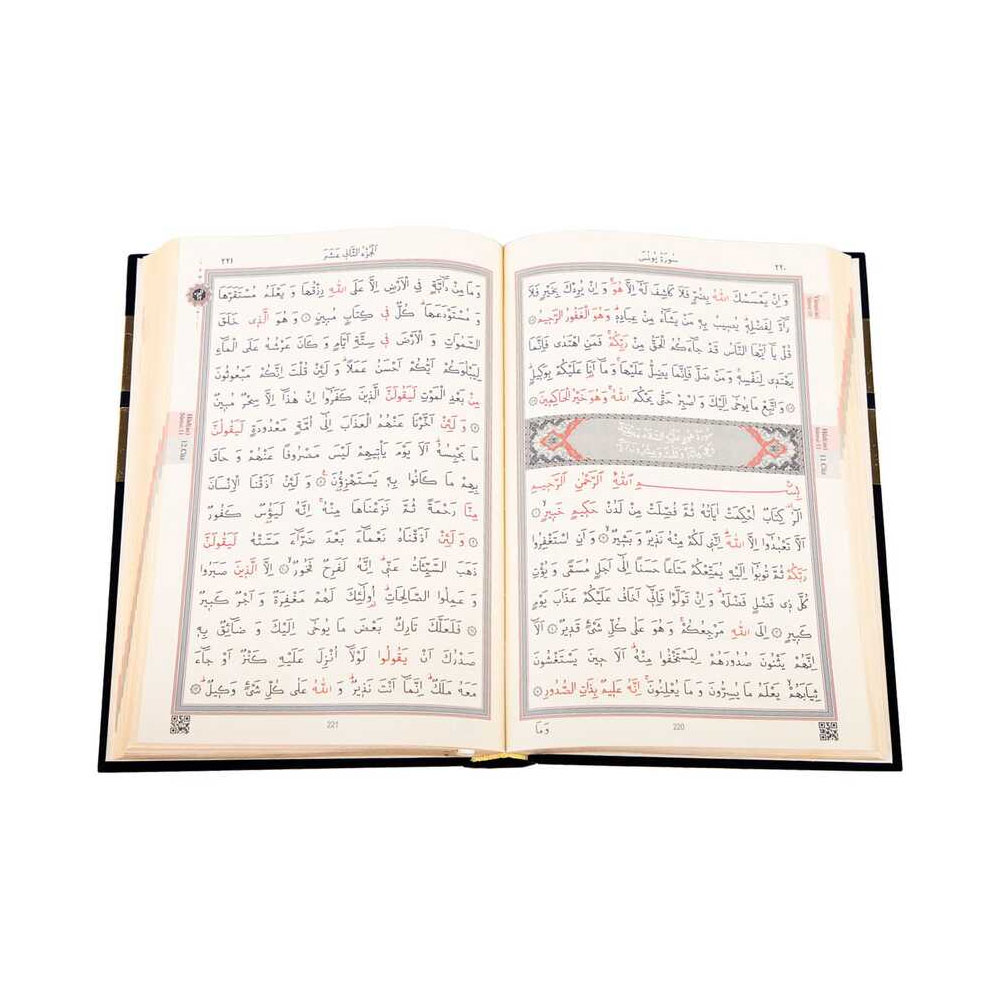 سُورَةُ يُونُسَ
٢٢٠
وَاِنْ يَمْسَسْكَ اللّٰهُ بِضُرٍّ فَلَا كَاشِفَ لَهُٓ اِلَّا هُوَۚ وَاِنْ يُرِدْكَ بِخَيْرٍ فَلَا
رَٓادَّ لِفَضْلِه۪ۜ يُص۪يبُ بِه۪ مَنْ يَشَٓاءُ مِنْ عِبَادِه۪ۜ وَهُوَ الْغَفُورُ الرَّح۪يمُ
قُلْ يَٓا اَيُّهَا النَّاسُ قَدْ جَٓاءَكُمُ الْحَقُّ مِنْ رَبِّكُمْۚ فَمَنِ اهْتَدٰى فَاِنَّمَا
يَهْتَد۪ي لِنَفْسِه۪ۚ وَمَنْ ضَلَّ فَاِنَّمَا يَضِلُّ عَلَيْهَاۚ وَمَٓا اَنَا۬ عَلَيْكُمْ بِوَك۪يلٍۜ
وَاتَّبِعْ مَا يُوحٰٓى اِلَيْكَ وَاصْبِرْ حَتّٰى يَحْكُمَ اللّٰهُۚ وَهُوَ خَيْرُ الْحَاكِم۪ينَ
بِسْمِ اللّٰهِ الرَّحْمٰنِ الرَّح۪يمِ
الٓرٰ۠ كِتَابٌ اُحْكِمَتْ اٰيَاتُهُ ثُمَّ فُصِّلَتْ مِنْ لَدُنْ حَك۪يمٍ خَب۪يرٍۙ
اَلَّا تَعْبُدُٓوا اِلَّا اللّٰهَۜ اِنَّن۪ي لَكُمْ مِنْهُ نَذ۪يرٌ وَبَش۪يرٌۙ وَاَنِ اسْتَغْفِرُوا
رَبَّكُمْ ثُمَّ تُوبُٓوا اِلَيْهِ يُمَتِّعْكُمْ مَتَاعًا حَسَنًا اِلٰٓى اَجَلٍ مُسَمًّى وَيُؤْتِ
كُلَّ ذ۪ي فَضْلٍ فَضْلَهُۜ وَاِنْ تَوَلَّوْا فَاِنّ۪ٓي اَخَافُ عَلَيْكُمْ عَذَابَ يَوْمٍ
كَب۪يرٍ اِلَى اللّٰهِ مَرْجِعُكُمْۚ وَهُوَ عَلٰى كُلِّ شَيْءٍ قَد۪يرٌ اَلَٓا
اِنَّهُمْ يَثْنُونَ صُدُورَهُمْ لِيَسْتَخْفُوا مِنْهُۜ اَلَا ح۪ينَ يَسْتَغْشُونَ
ثِيَابَهُمْۙ يَعْلَمُ مَا يُسِرُّونَ وَمَا يُعْلِنُونَۚ اِنَّهُ عَل۪يمٌ بِذَاتِ الصُّدُورِ
وَمَا
220
Hûd(as)
Sûresi 11
11.Cüz
اَلْجُزْءُ الثَّان۪ي عَشَرَ
٢٢١
وَمَا مِنْ دَٓابَّةٍ فِي الْاَرْضِ اِلَّا عَلَى اللّٰهِ رِزْقُهَا وَيَعْلَمُ مُسْتَقَرَّهَا
وَمُسْتَوْدَعَهَاۜ كُلٌّ ف۪ي كِتَابٍ مُب۪ينٍ وَهُوَ الَّذ۪ي خَلَقَ
السَّمٰوَاتِ وَالْاَرْضَ ف۪ي سِتَّةِ اَيَّامٍ وَكَانَ عَرْشُهُ عَلَى الْمَٓاءِ
لِيَبْلُوَكُمْ اَيُّكُمْ اَحْسَنُ عَمَلًاۜ وَلَئِنْ قُلْتَ اِنَّكُمْ مَبْعُوثُونَ
مِنْ بَعْدِ الْمَوْتِ لَيَقُولَنَّ الَّذ۪ينَ كَفَرُٓوا اِنْ هٰذَٓا اِلَّا سِحْرٌ مُب۪ينٌ
وَلَئِنْ اَخَّرْنَا عَنْهُمُ الْعَذَابَ اِلٰٓى اُمَّةٍ مَعْدُودَةٍ لَيَقُولُنَّ
مَا يَحْبِسُهُۜ اَلَا يَوْمَ يَأْت۪يهِمْ لَيْسَ مَصْرُوفًا عَنْهُمْ وَحَاقَ
بِهِمْ مَا كَانُوا بِه۪ يَسْتَهْزِؤُ۫نَ۟ وَلَئِنْ اَذَقْنَا الْاِنْسَانَ
مِنَّا رَحْمَةً ثُمَّ نَزَعْنَاهَا مِنْهُۚ اِنَّهُ لَيَؤُ۫سٌ كَفُورٌ
وَلَئِنْ اَذَقْنَاهُ نَعْمَٓاءَ بَعْدَ ضَرَّٓاءَ مَسَّتْهُ لَيَقُولَنَّ
ذَهَبَ السَّيِّـَٔاتُ عَنّ۪يۜ اِنَّهُ لَفَرِحٌ فَخُورٌۙ اِلَّا الَّذ۪ينَ صَبَرُوا
وَعَمِلُوا الصَّالِحَاتِۜ اُو۬لٰٓئِكَ لَهُمْ مَغْفِرَةٌ وَاَجْرٌ كَب۪يرٌ
فَلَعَلَّكَ تَارِكٌ بَعْضَ مَا يُوحٰٓى اِلَيْكَ وَضَٓائِقٌ بِه۪
صَدْرُكَ اَنْ يَقُولُوا لَوْلَٓا اُنْزِلَ عَلَيْهِ كَنْزٌ اَوْ جَٓاءَ
مَعَهُ مَلَكٌۜ اِنَّمَٓا اَنْتَ نَذ۪يرٌۜ وَاللّٰهُ عَلٰى كُلِّ شَيْءٍ وَك۪يلٌۜ
221
Hûd(as)
Sûresi 11
12.Cüz